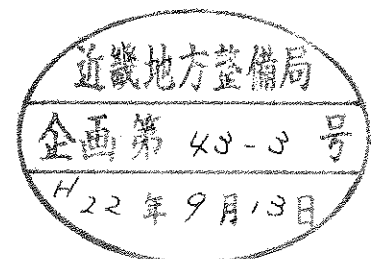 近畿地方整備局
企画第 43-3 号
H22年9月13日